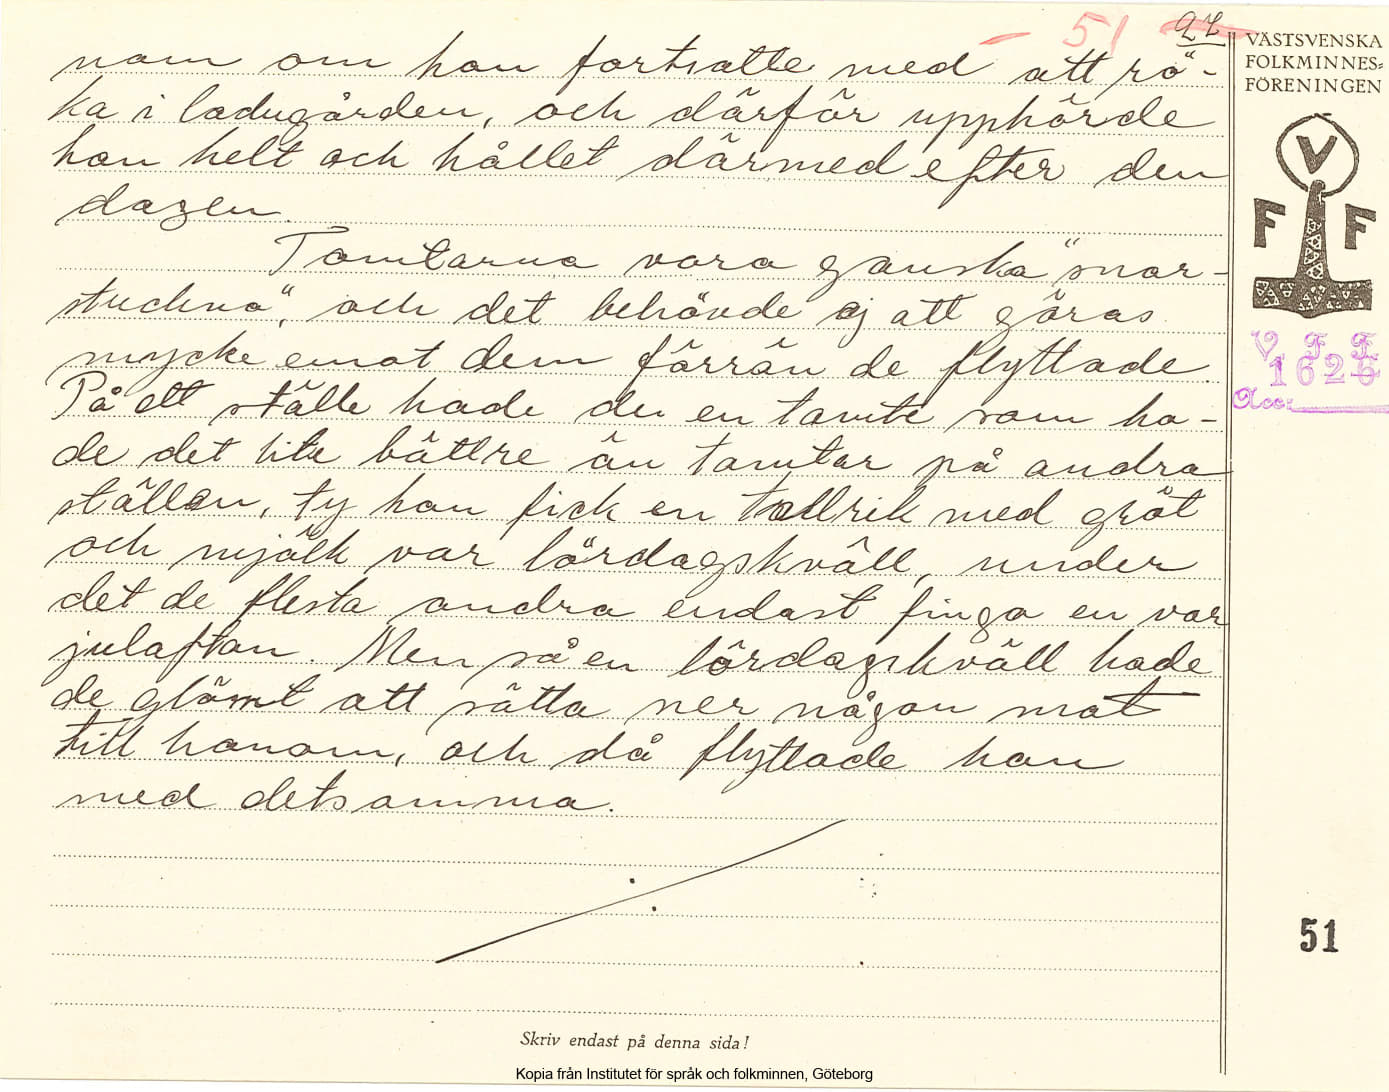 - 51 -
27
nom om han fortsatte med att rö-
ka i ladugården, och därför upphörde
han helt och hållet därmed efter den
dagen.
Tomtarna vora ganska "snar-
stuckna", och det behövde ej att göras
mycke emot dem förrän de flyttade.
På ett ställe hade de en tomte som ha-
de det lite bättre än tomtar på andra
ställen, ty han fick en tallrik med gröt
och mjölk var lördagskväll, under
det de flesta andra endast finga en var
julaftan. Men så en lördagskväll hade
de glömt att sätta ner någon mat
till honom, och då flyttade han
med detsamma.
VÄSTSVENSKA
FOLKMINNES=
FÖRENINGEN
V
F F
V. F. F.
1626
Acc:
51
Skriv endast på denna sida!
Kopia från Institutet för språk och folkminnen, Göteborg